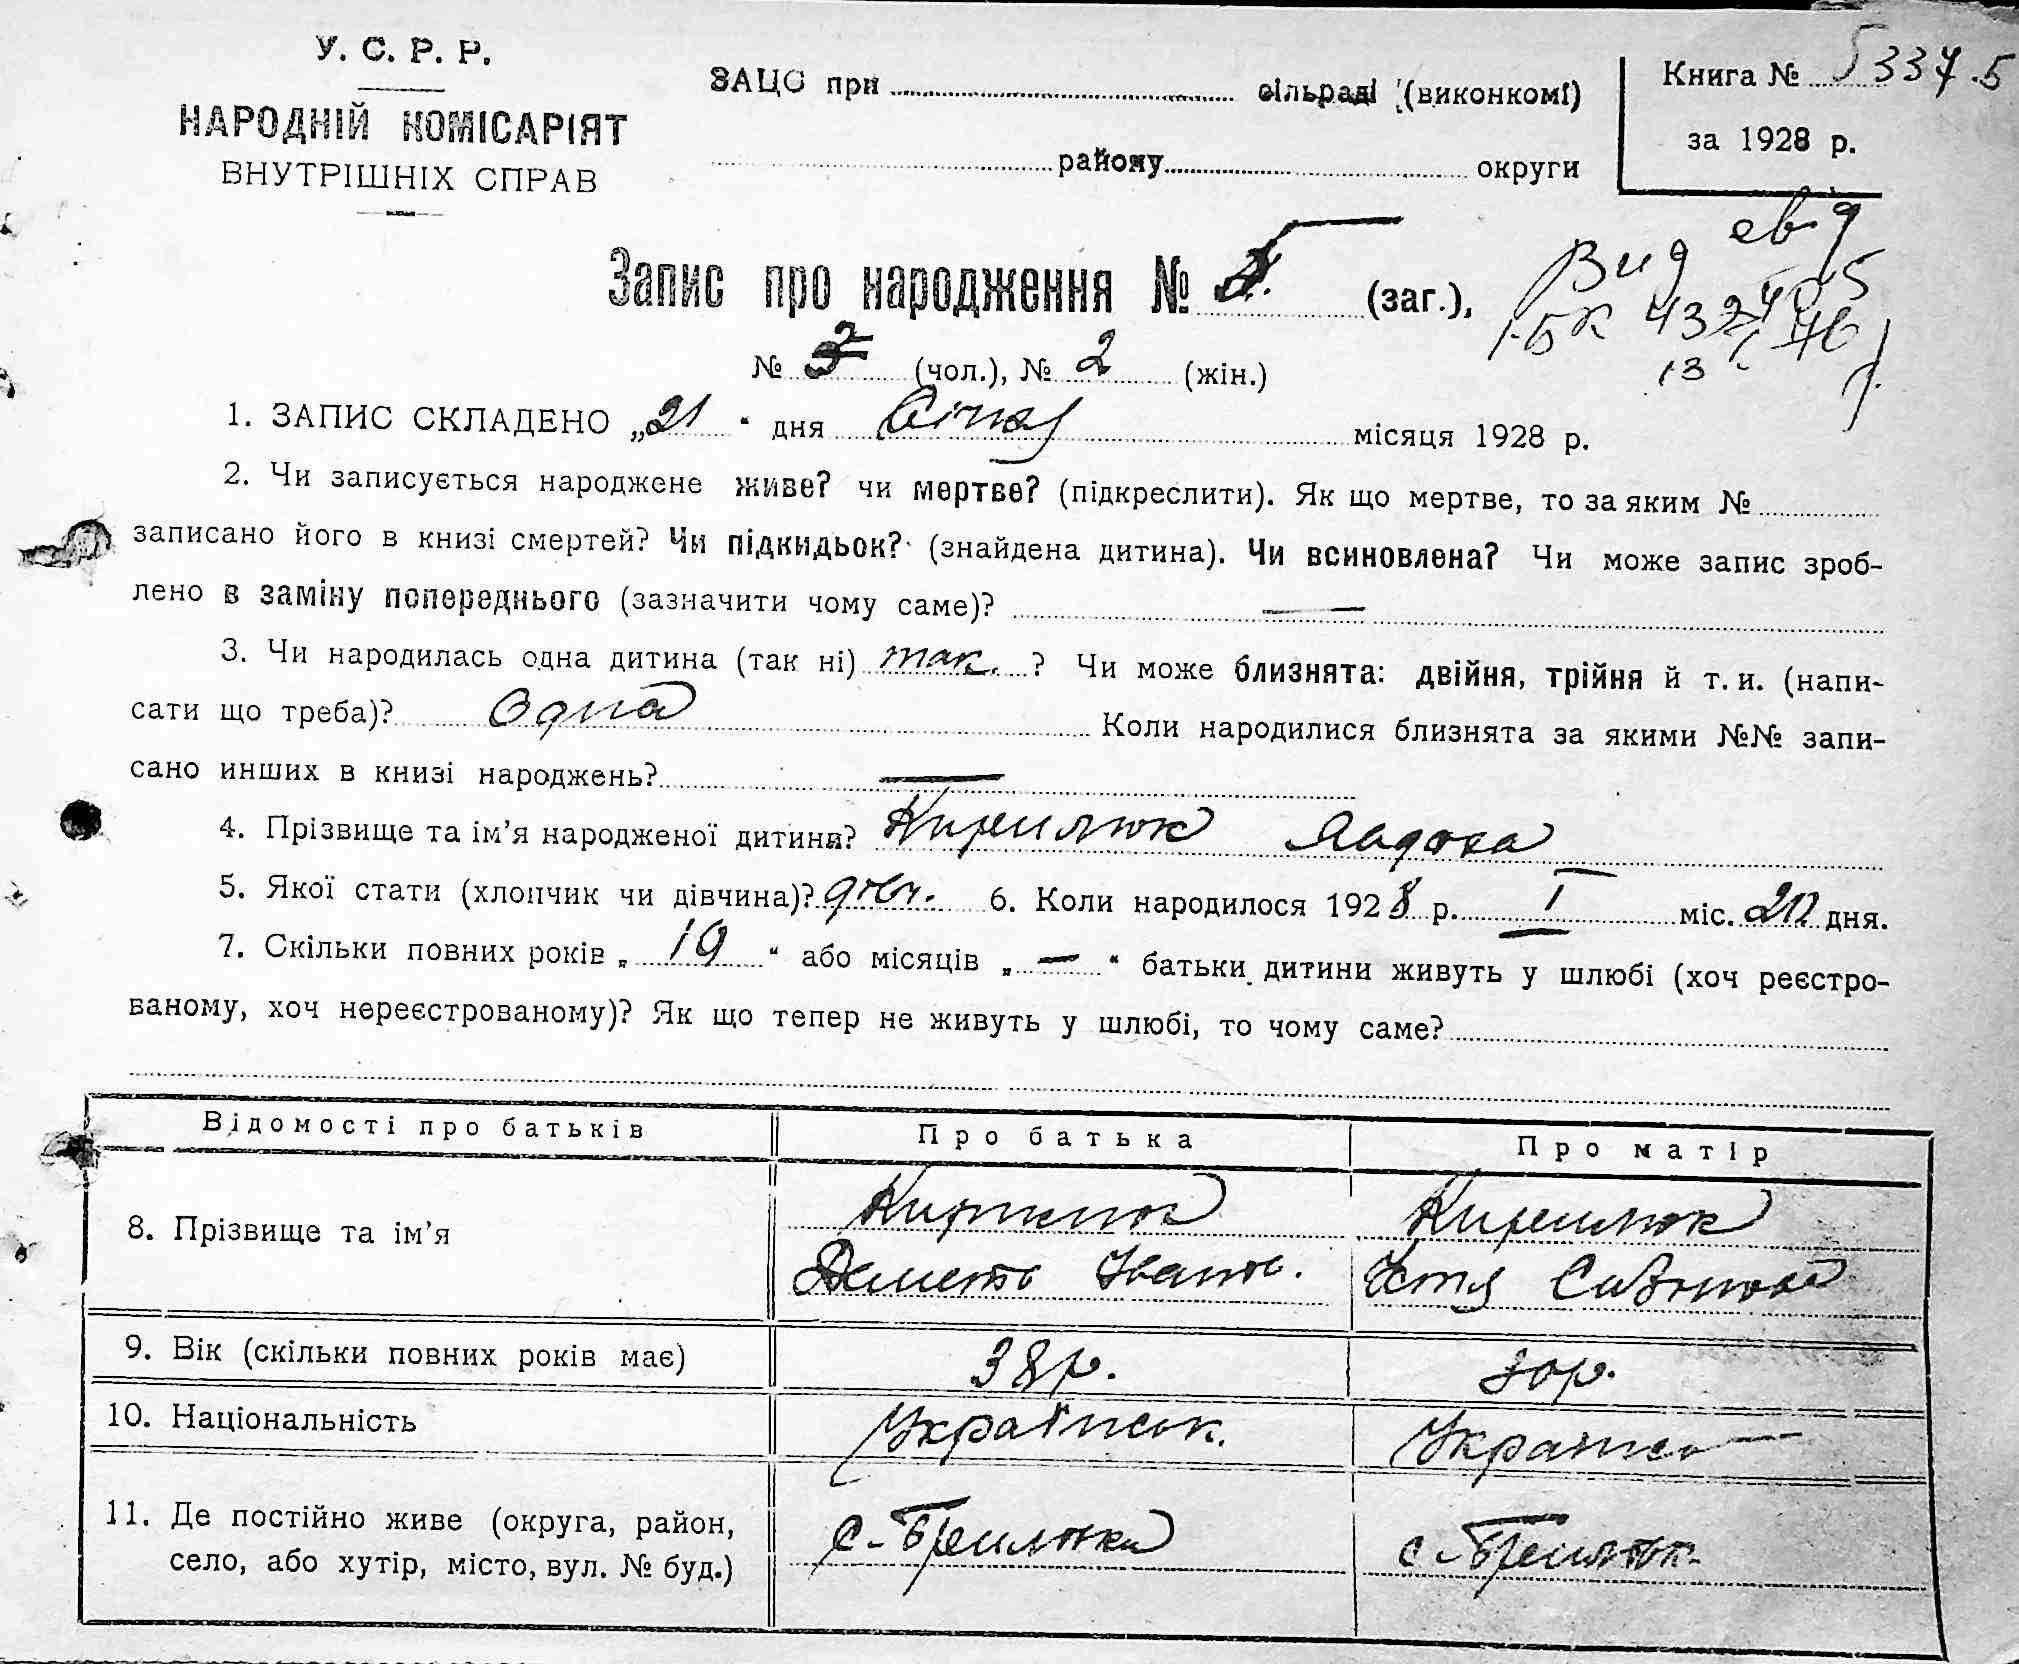 У. С. Р. Р.
НАРОДНІЙ КОМІСАРІЯТ
ВНУТРІШНІХ СПРАВ
ЗАЦС при сільраді (виконкомі)
району округи
Книга № 5337.5
за 1928 р.
Запис про народження № (заг.),
№ (чол.), № 2 (жін.)
Вид
1. ЗАПИС СКЛАДЕНО „21“ дня Січня місяця 1928 р.
2. Чи записується народжене живе? чи мертве? (підкреслити). Як що мертве, то за яким №
записано його в книзі смертей? Чи підкидьок? (знайдена дитина). Чи всиновлена? Чи може запис зроб-
лено в заміну попереднього (зазначити чому саме)? —
3. Чи народилась одна дитина (так ні) так. ? Чи може близнята: двійня, трійня й т. и. (напи-
сати що треба)? Одна Коли народилися близнята за якими №№ запи-
сано инших в книзі народжень? —
4. Прізвище та ім’я народженої дитини? Кирилюк Явдоха
5. Якої стати (хлопчик чи дівчина)? дівч. 6. Коли народилось 1928 р. I міс. 20 дня.
7. Скільки повних років „19“ або місяців „—“ батьки дитини живуть у шлюбі (хоч реєстро-
ваному, хоч нереєстрованому)? Як що тепер не живуть у шлюбі, то чому саме?
Відомості про батьків Про батька Про матір
8. Прізвище та ім’я Кирилюк Кирилюк
Іванов. Устя
9. Вік (скільки повних років має) 38 р. 30 р.
10. Національність Українськ.
11. Де постійно живе (округа, район,
село, або хутір, місто, вул. № буд.)